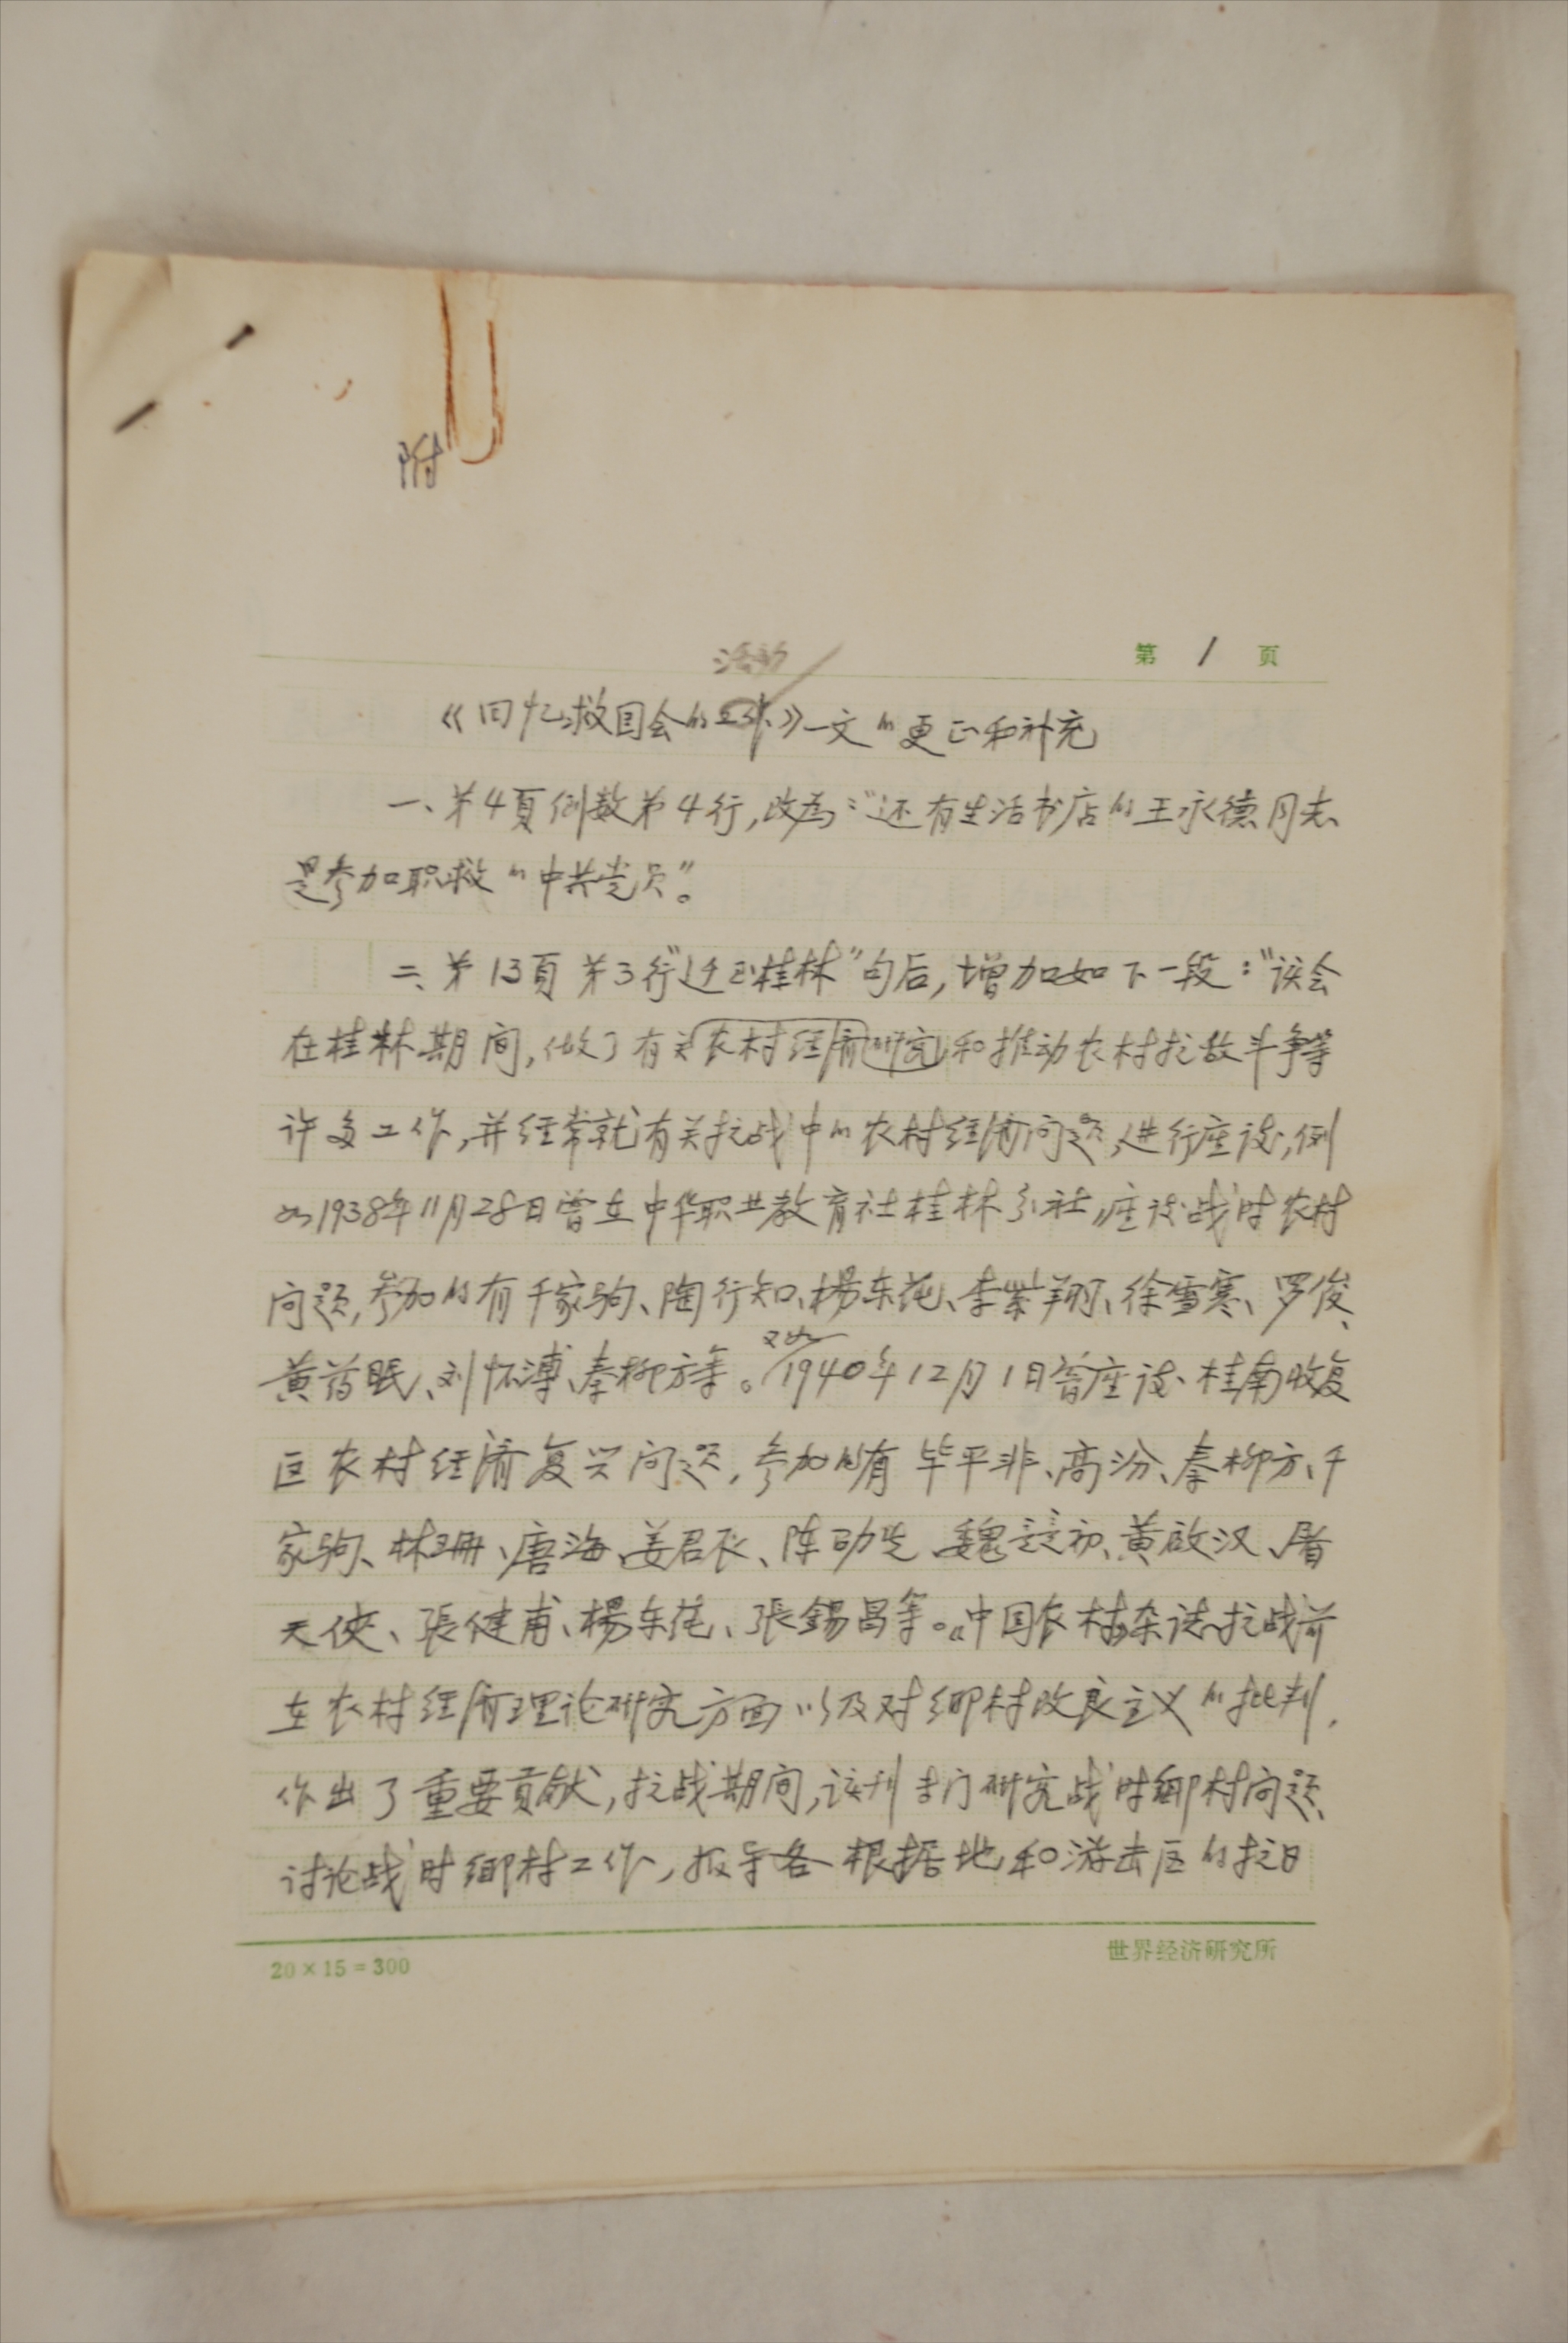 附
第 1 页
活动
《回忆救国会的工作》一文的更正和补充
一、第4頁倒数第4行,改为:“还有生活书店的王永德同志、
是参加职救的中共党员”。
二、第13頁第3行“迁到桂林”句后,增加如下一段:“该会
在桂林期间,做了有关农村经济研究和推动农村抗敌斗争等
许多工作,并经常就有关抗战中的农村经济问题,进行座谈,例
如1938年11月28日曾在中华职业教育社桂林分社,座谈战时农村
问题,参加的有千家驹、陶行知、楊东莼、李紫翔、徐雪寒、罗俊、
黄药眠、刘怀溥、秦柳方等。又如1940年12月1日曾座谈桂南收复
区农村经济复兴问题,参加的有毕平非、高汾、秦柳方、千
家驹、林珊、唐海、姜君辰、陈劭先、魏 初、黄啟汉、屠
天侠、張健甫、楊东莼、張錫昌等。《中国农村》杂志抗战前
在农村经济理论研究方面以及对鄉村改良主义的批判,
作出了重要贡献,抗战期间,该刊专门研究战时鄉村问题、
讨论战时鄉村工作,报导各根据地和游击区的抗日
20×15=300
世界经济研究所